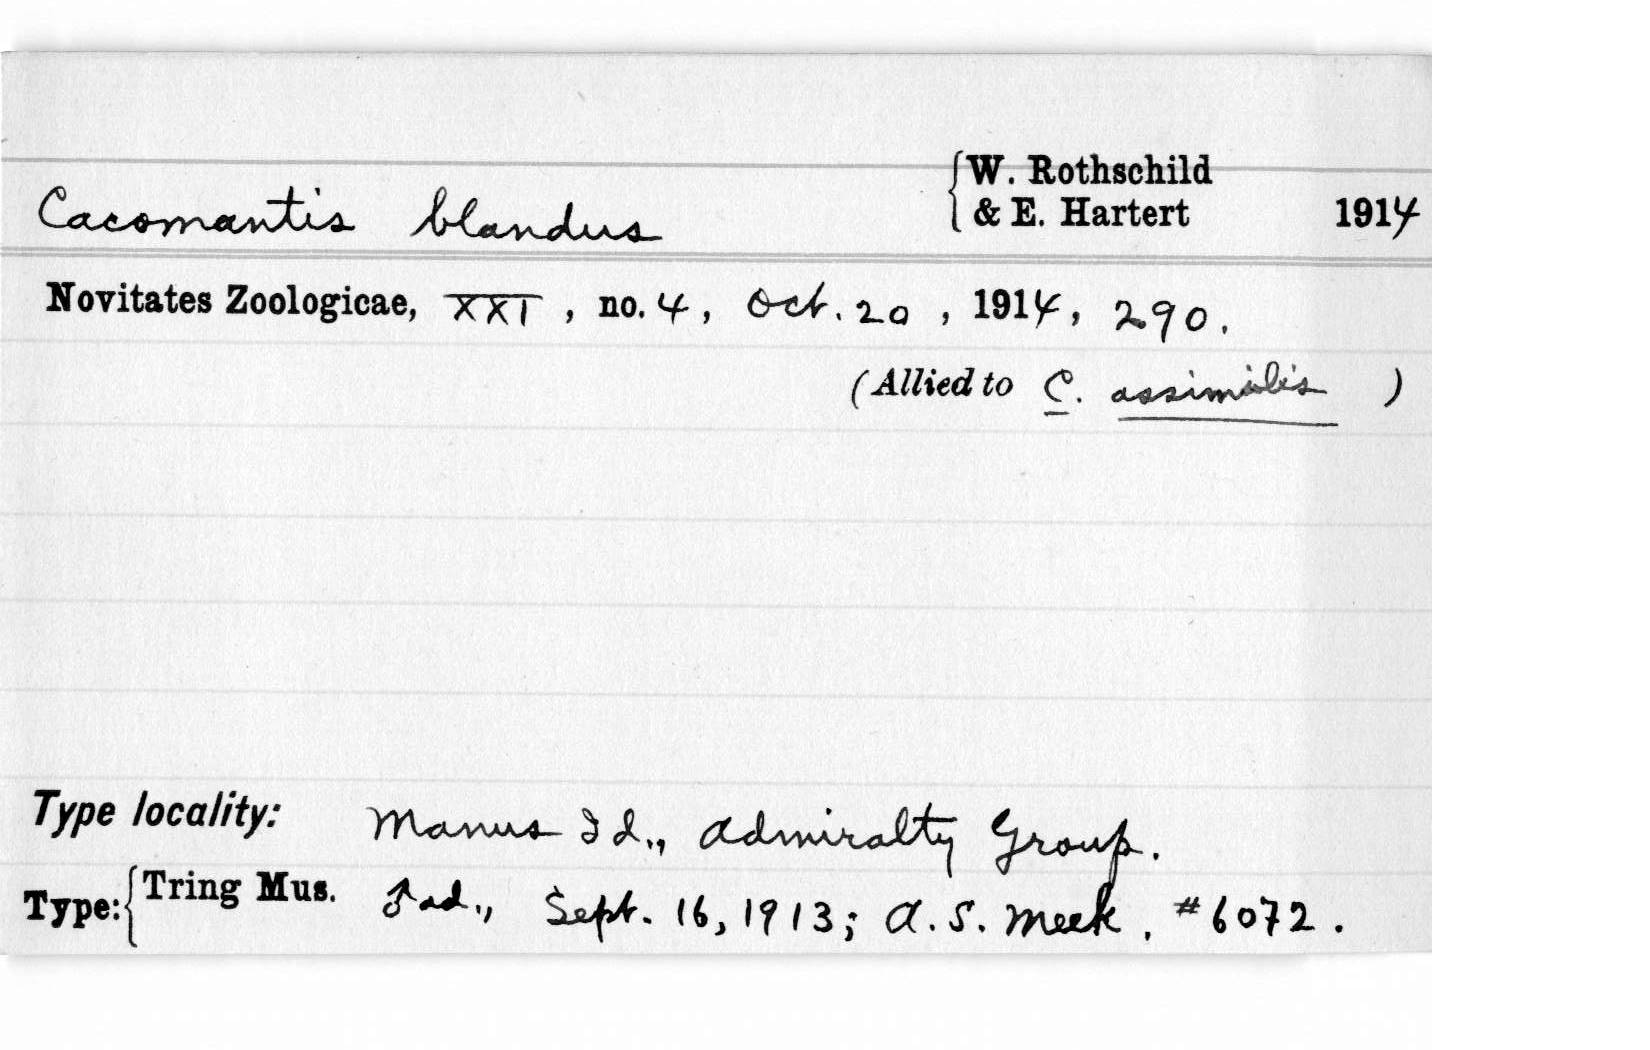 {W. Rothschild
Cacomantis blandus & E. Hartert 1914
Novitates Zoologicae, XXI, no. 4, Oct. 20, 1914, 290.
(Allied to C. assimilis)
Type locality: Manus Id., Admiralty Group.
Type: {Tring Mus. ♂ ad., Sept. 16, 1913; A. S. Meek, #6072.